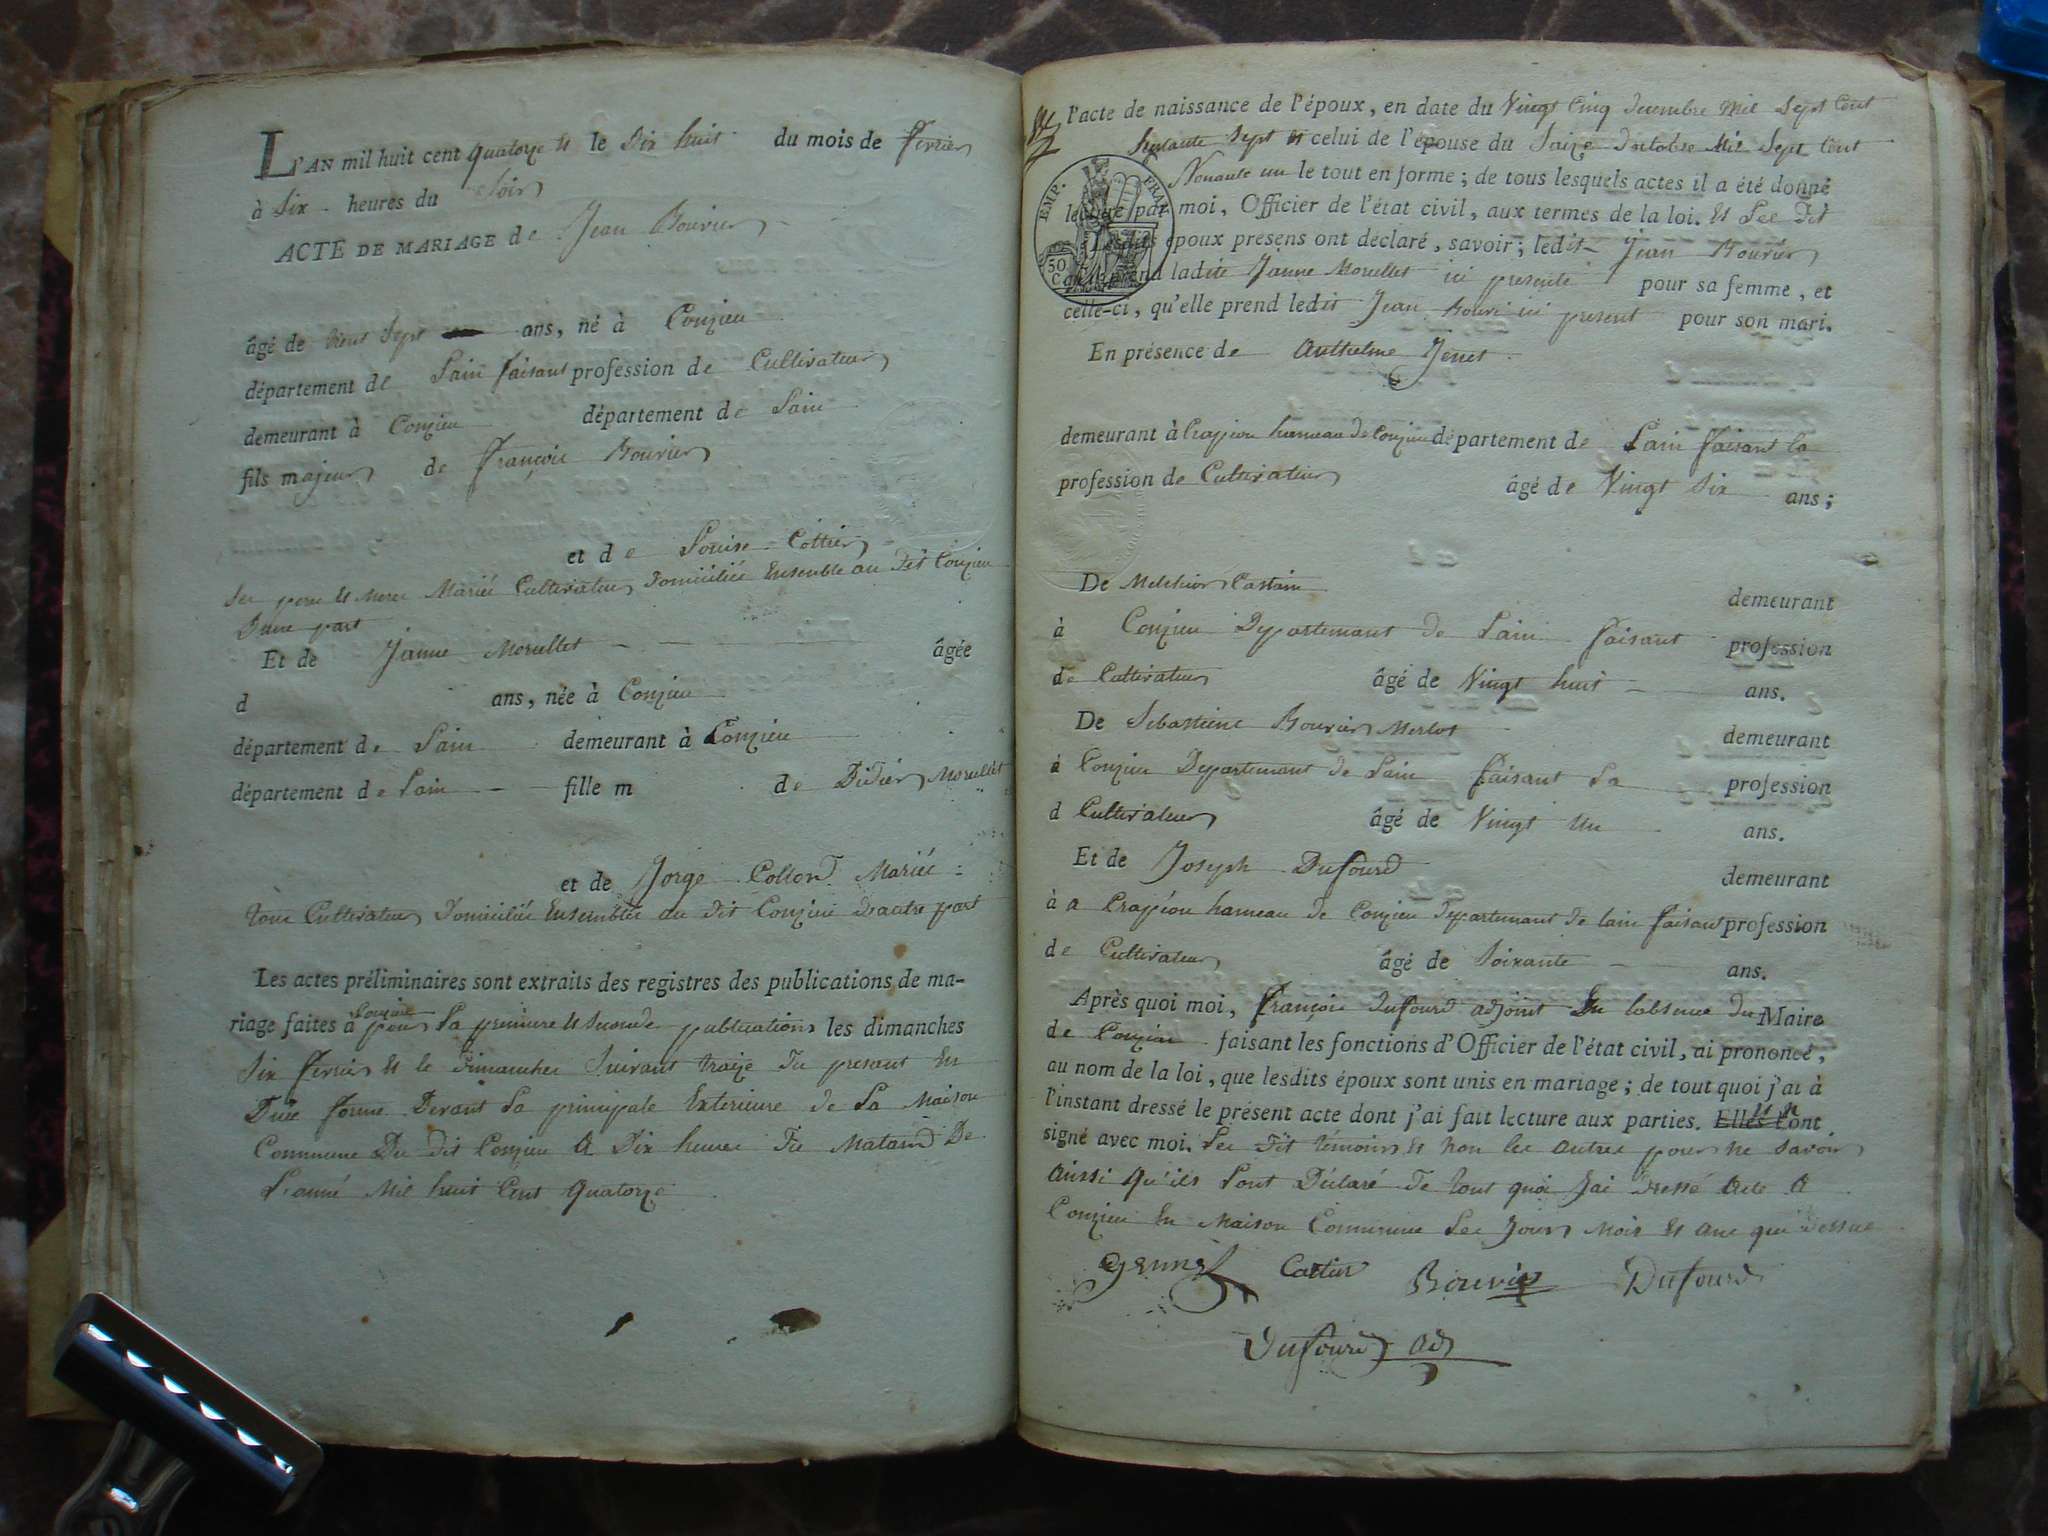 L'AN mil huit cent quatorze & le Dix huit du mois de fevrier
à Six heures du Soir
ACTE DE MARIAGE de Jean Bouvier
âgé de trent Sept ans, né à Conzieu
département de Lain faisant profession de Cultivateur
demeurant à Conzieu département de Lain
fils majeur de françois Bouvier
et de Louise Cottier
Ses pere & mere Mariés Cultivateur Domiciliée Ensemble au Dit Conzieu
Dune part
Et de Janne Morellet âgée
d ans, née à Conzieu
département de Lain demeurant à Conzieu
département de Lain fille m de Didier Morellet
et de Jorge Collond Mariés
tous Cultivateur Domiciliés Ensembles au dit Conzieu dautre part
Les actes préliminaires sont extraits des registres des publications de ma-
Conzieu
riage faites à pour La premiere & Seconde publications les dimanches
Six fevrier & le dimancher Suivant traize Du presant En
Duee forme Devant La principale Exterieure de La Maison
Commune Du dit Conzieu A Dix heures Du Matamd De
L'anné Mil huit Cent Quatorze
l'acte de naissance de l'époux, en date du Vingt Cinq decembre Mil Sept Cent
Septante Sept & celui de l'épouse du Saize Doctobre Mil Sept Cent
Nonante un le tout en forme; de tous lesquels actes il a été donné
EMP. FRAN.
50 C
lecture par moi, Officier de l'état civil, aux termes de la loi. & Les Dit
Lesdits époux présens ont déclaré, savoir; ledit Jean Bouvier
qu'il prend ladite Janne Morellet ici presente pour sa femme, et
celle-ci, qu'elle prend ledit Jean Bouvi ici present pour son mari.
En présence de Anthelme Jenet
demeurant à Crapéou hameau de Conzieu département de Lain faisant la
profession de Cultivateur âgé de Vingt Six ans;
De Melchior Castin demeurant
à Conzieu Departemant de Lain faisant profession
de Cultivateur âgé de Vingt huit ans.
De Sebastiene Bouvier Merlot demeurant
à Conzieu Departemant de Lain faisant La profession
d Cultivateur âgé de Vingt Un ans.
Et de Joseph Dufourd demeurant
à a Crapéou hameau de Conzieu departemant de lain faisant profession
de Cultivateur âgé de Soixante ans.
Après quoi moi, françois dufourd adjoint En labsence du Maire
de Conzieu faisant les fonctions d'Officier de l'état civil, ai prononcé,
au nom de la loi, que lesdits époux sont unis en mariage; de tout quoi j'ai à
l'instant dressé le présent acte dont j'ai fait lecture aux parties. Elles l'ont
signé avec moi. Les Dit témoins & non les autres pour ne Savoir
Aussi qu'ils Lont Déclaré De tout quoi Jai dressé Acte A
Conzieu En Maison Commune Les Jour Mois & ans que dessus
Jennet Castin Bouvier Dufourd
Dufourd adj